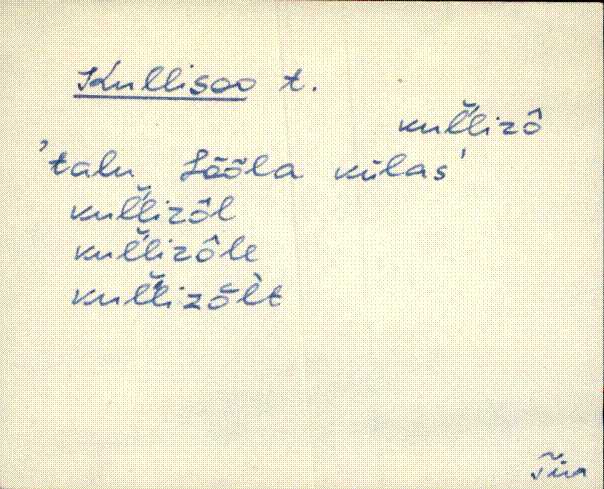 Kullisoo t.
kuĺ̆lizô
'talu Sõõla külas'
kuĺ̆lizôl
kuĺ̆lizôle
kuĺ̆lizõ̀lt